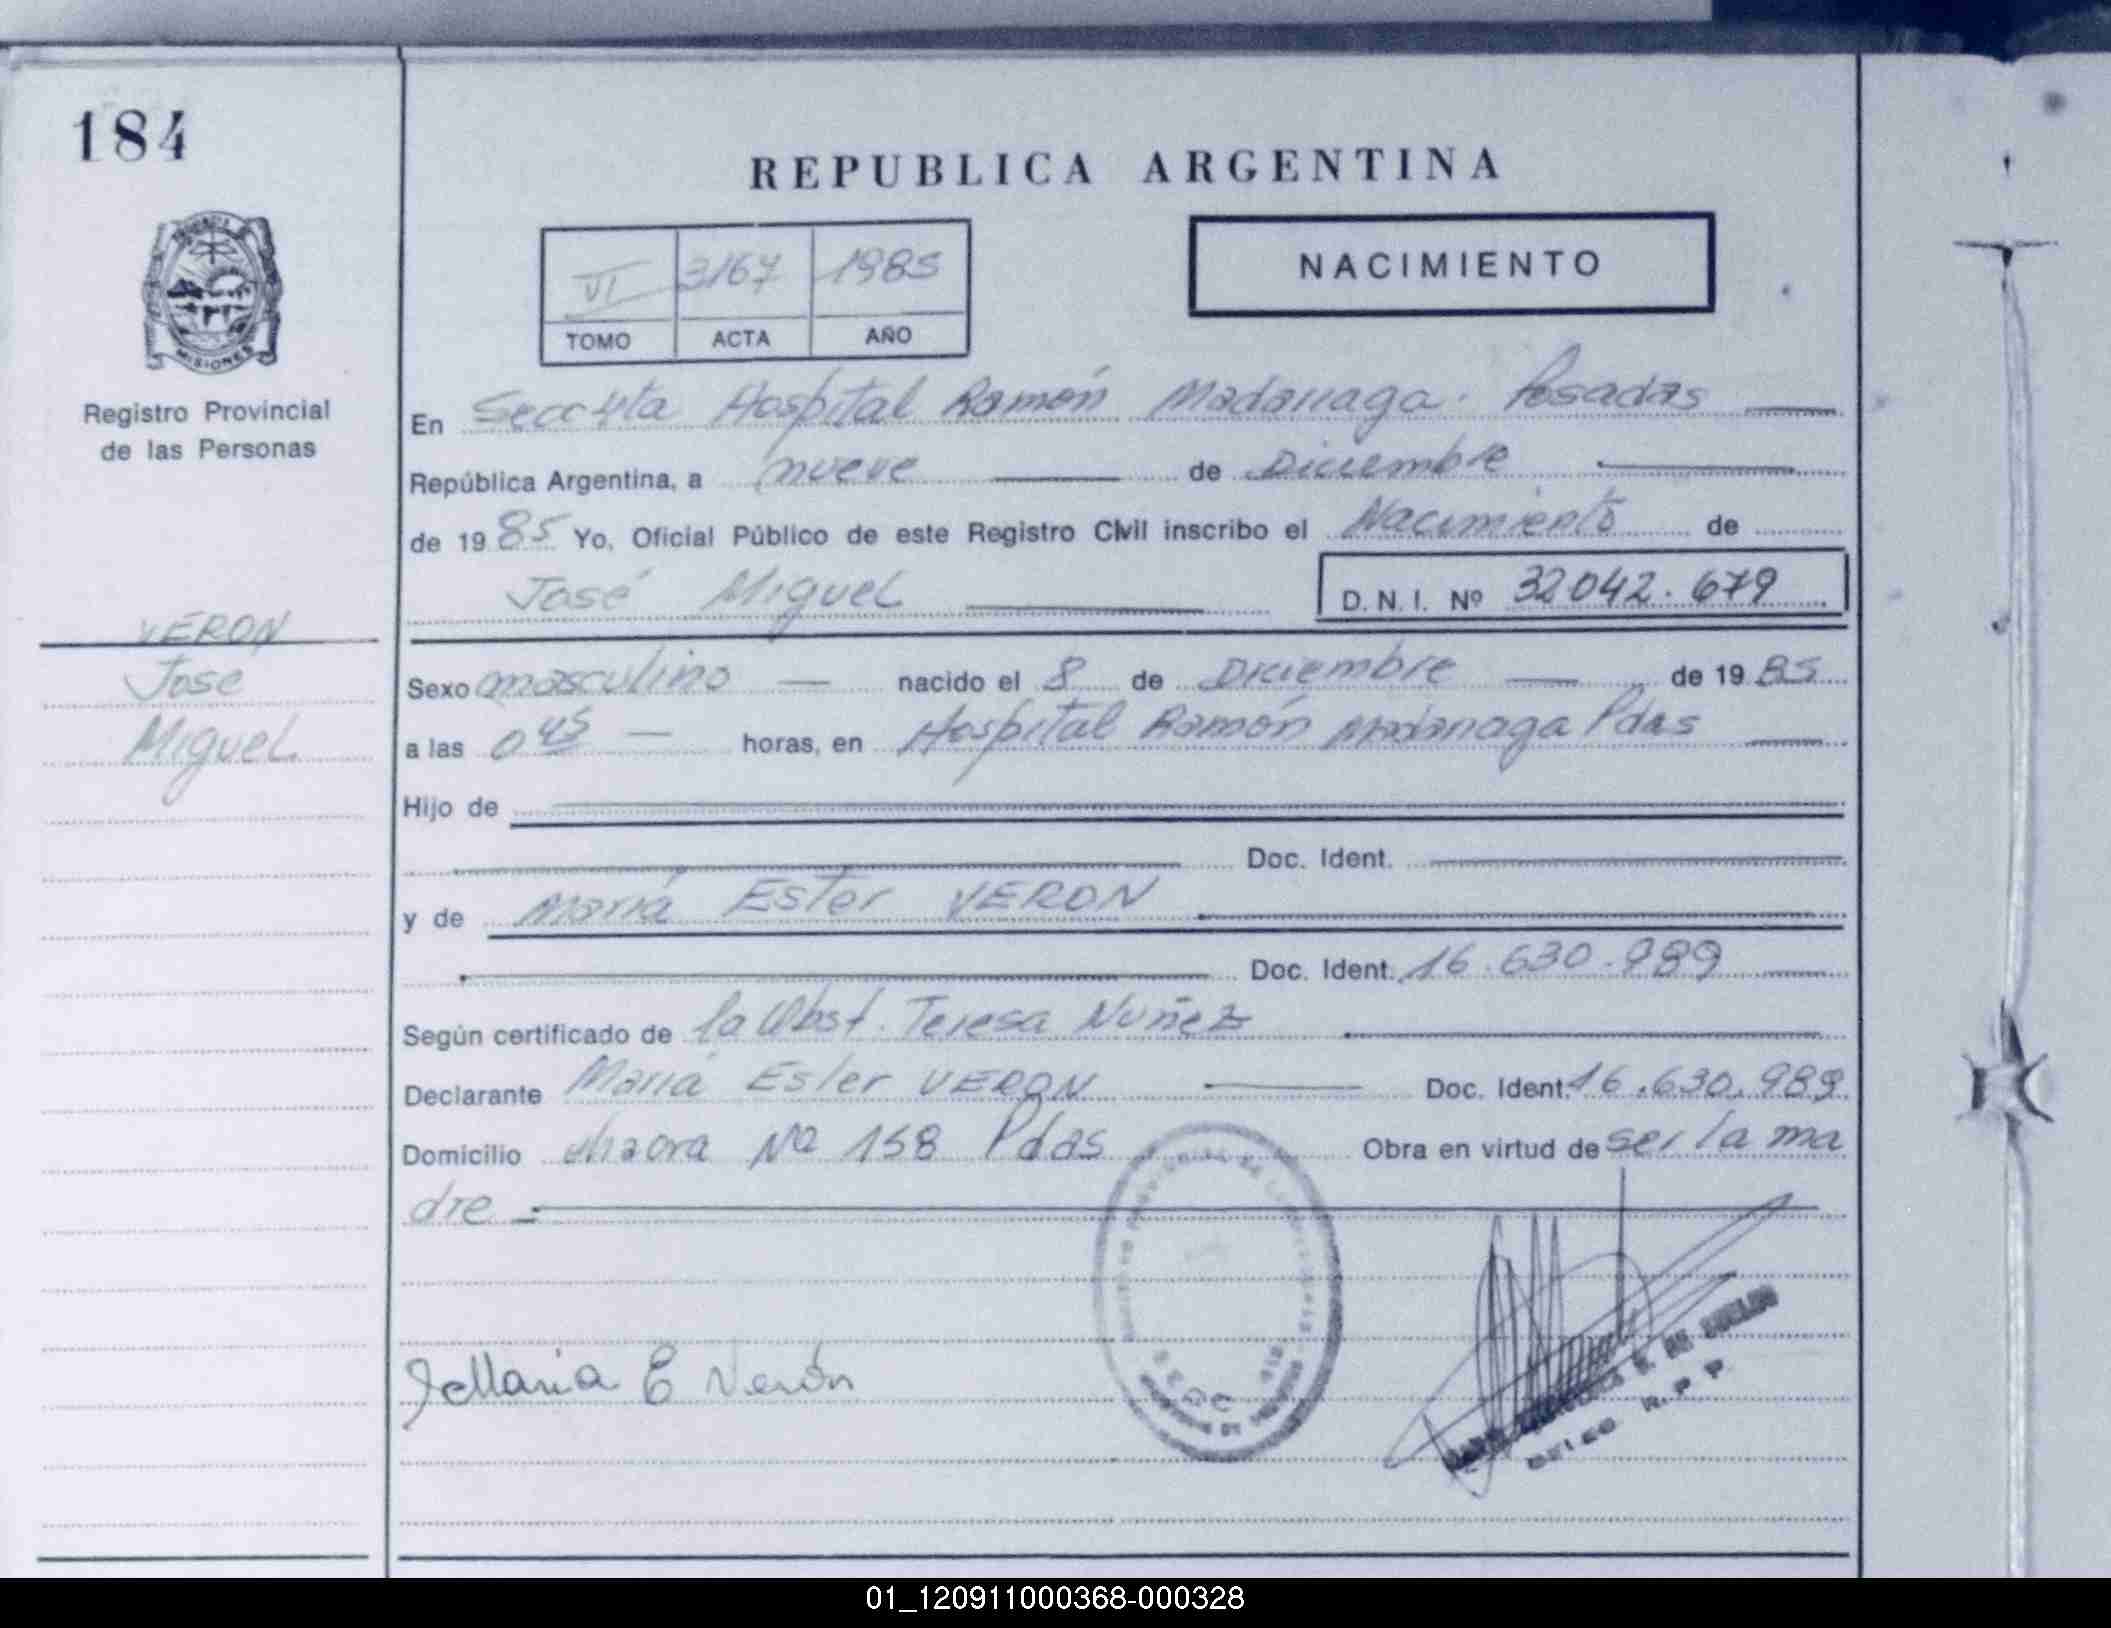 184
REPUBLICA ARGENTINA
NACIMIENTO
VI 3167 1985
TOMO ACTA AÑO
MISIONES
Registro Provincial
de las Personas
En Secc 4ta Hospital Ramón Madariaga. Posadas
República Argentina, a nueve de Diciembre
de 1985 Yo, Oficial Público de este Registro Civil inscribo el Nacimiento de
José Miguel D.N.I. Nº 32042.679
VERON
José
Miguel
Sexo masculino nacido el 8 de Diciembre de 1985
a las 0 45 horas, en Hospital Ramón Madariaga Pdas
Hijo de
Doc. Ident.
y de María Ester VERON
Doc. Ident. 16.630.989
Según certificado de la Obst. Teresa Nuñez
Declarante María Ester VERON Doc. Ident. 16.630.989
Domicilio chacra Nº 158 Pdas Obra en virtud de ser la ma
dre
Maria E Verón
R. P. P.
01_120911000368-000328